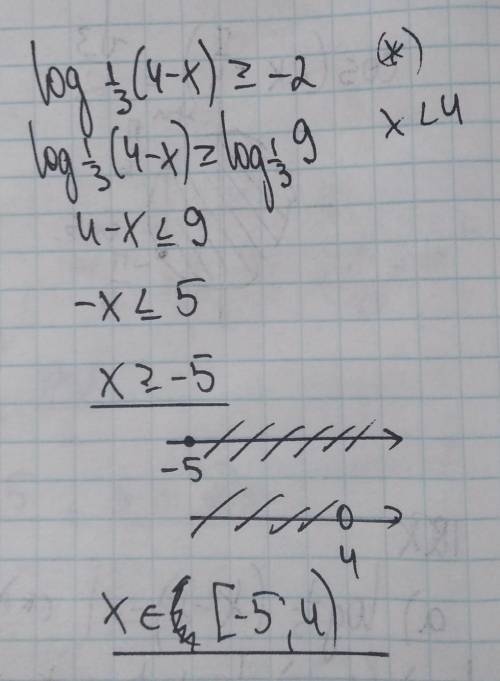 log 1/3 (4-x) ≥ -2 (*)
x < 4
log 1/3 (4-x) ≥ log 1/3 9
4-x ≤ 9
-x ≤ 5
x ≥ -5
-5
4
x ∈ [-5, 4)